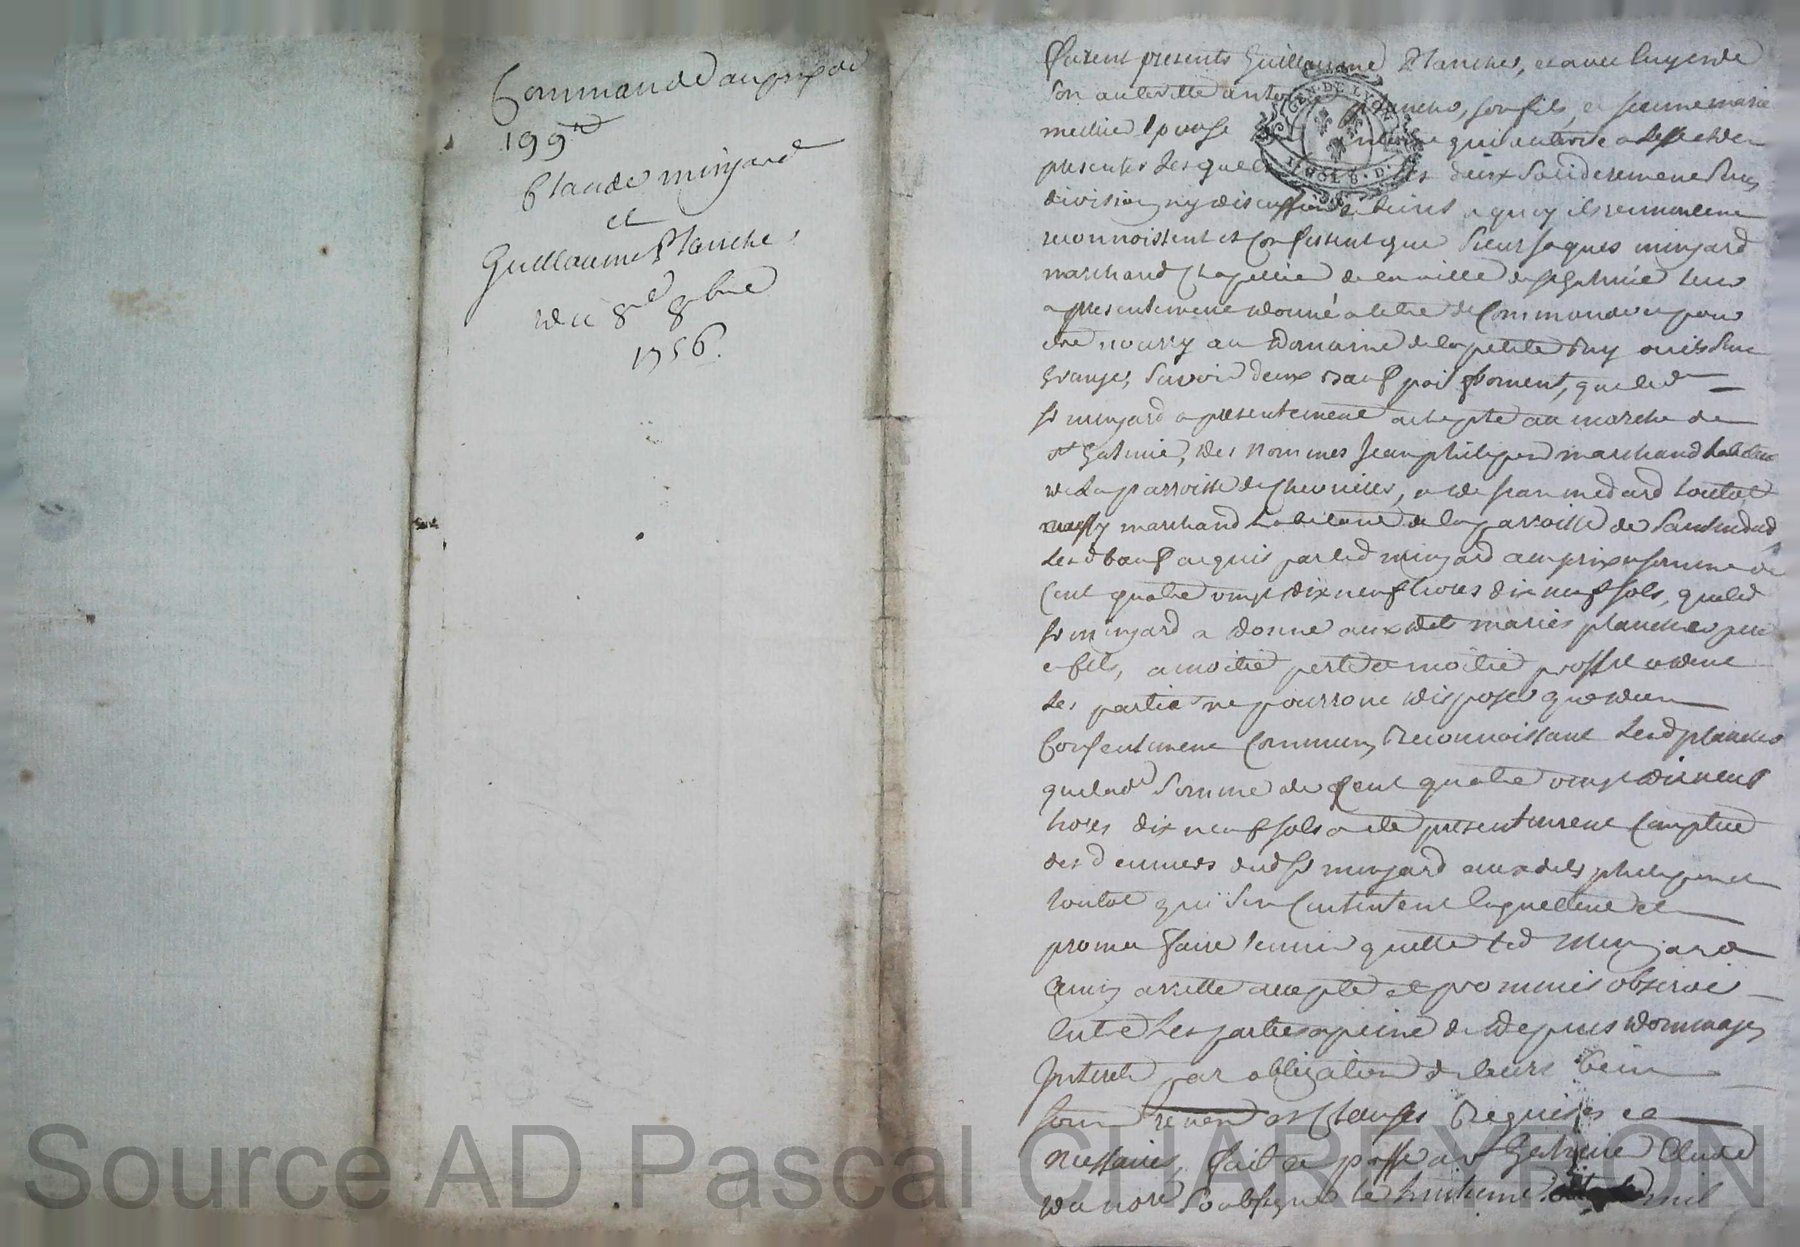 Commande au prix de
199 lt
Claude minjard
et
Guillaume Planche
du 8e 8bre
1756.
GEN. DE LYON
Furent presents Guillaume Planches, et avec luy et de
son autorité planches, son fils, et jeanne marie
epouse qui autorise a l'effet des
presentes lesquels deux soliderement sans
division ny discussion a quoy ils renoncent
reconnoissent et confessent que sieur jaques minjard
marchand Chapellier de la ville de st Galmier leur
a presentement donné a titre de Commande pour
etre nourry au domaine de la petite
granges, savoir deux bœuf poil froment, que led
sr minjard a presentement achepté au marche de
st Galmier, des nommes jean philipon marchand habitant
de la parroisse de Chevrieres, et de jean medard
marchand habitant de la parroisse de
lesd bœuf acquis par led minjard au prix et somme de
Cent quatre vingt dix neuf livres dix neuf sols, que led
sr minjard a donné aux dits mariés planches pere
et fils, a moitié perte et moitié proffit et dont
les partie ne pourront disposer que d'un
Consentement Commun, Reconnoissant lesd planches
que lad somme de Cent quatre vingt dix neuf
livres dix neuf sols a ete presentement Comptée
des deniers dud sr minjard auxdits philipon et
qui s'en Contentent laquelle
promet faire tenir quitte led Minjard
ainsy arrette accepté et promis observer
entre les parties a peine de depens dommages
Interets par obligation de leurs biens
et Clauses Requises et
necessaires, fait et passé a st Galmier Etude
du nore soubsigné le huitieme mil
Source AD Pascal CHAREYRON